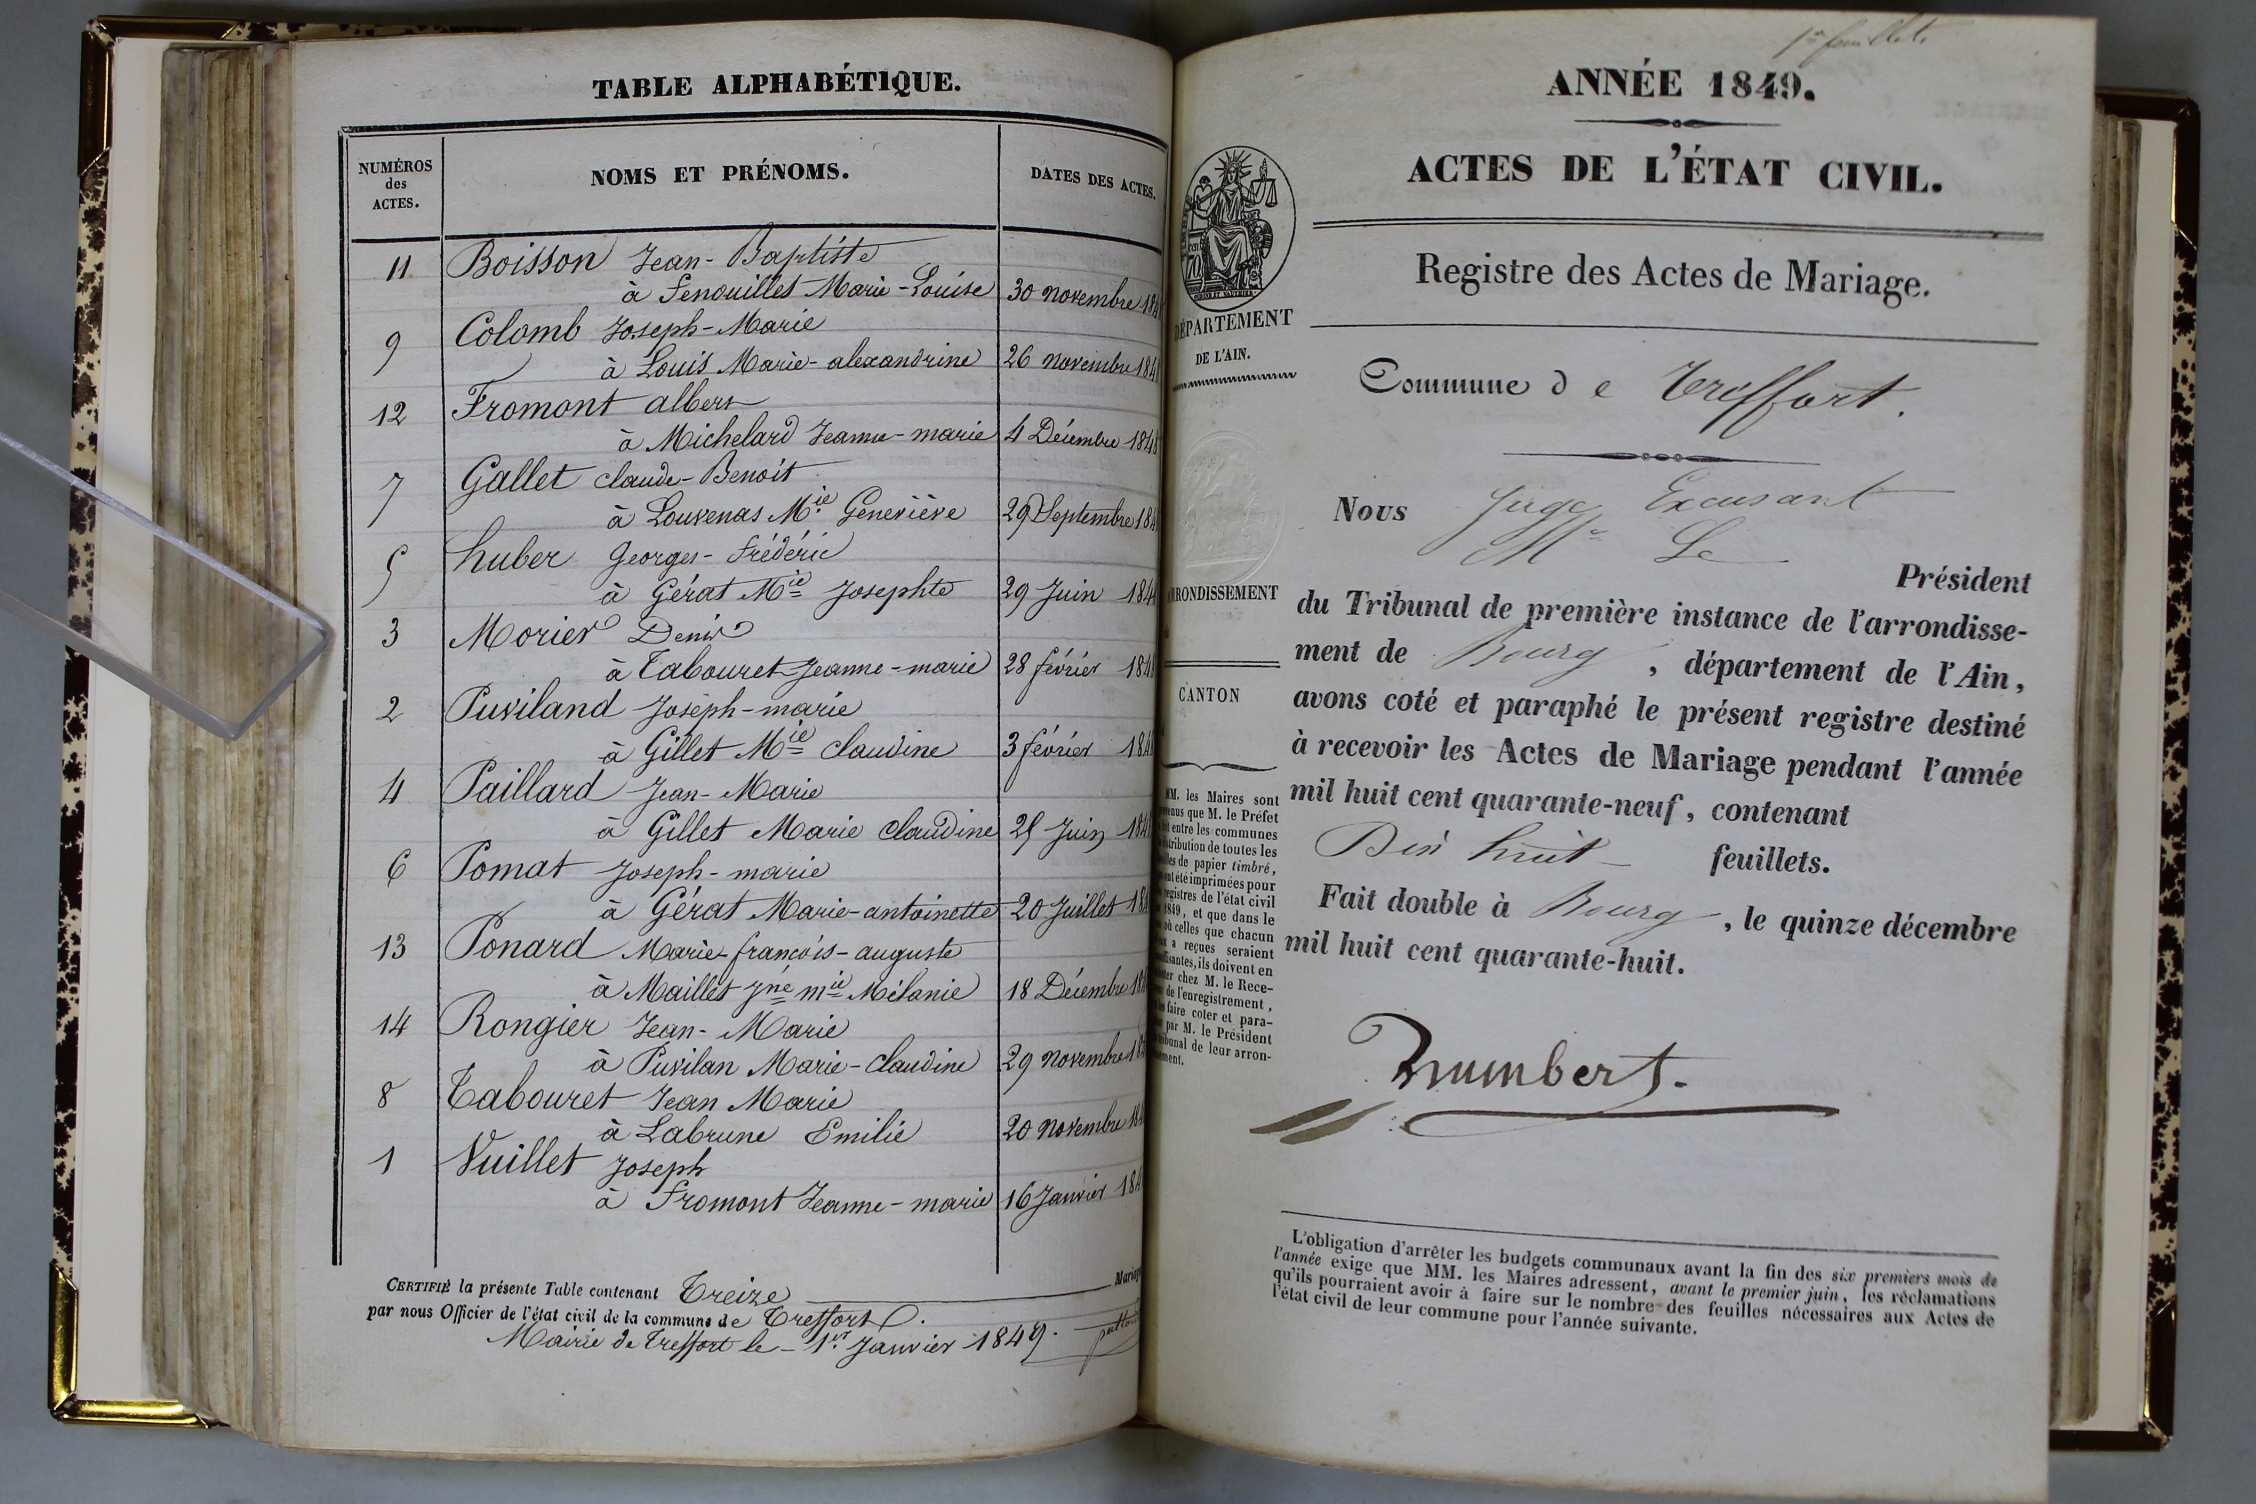 TABLE ALPHABÉTIQUE.
NUMÉROS
des
ACTES.
NOMS ET PRÉNOMS.
DATES DES ACTES.
11 Boisson Jean-Baptiste
à Fenouillet Marie-Louise 30 novembre 184
9 Colomb Joseph-Marie
à Louis Marie-alexandrine 26 novembre 184
12 Fromont albert
à Michelard Jeanne-marie 4 Décembre 1848
7 Gallet claude-Benoit
à Louvenas Mie Geneviève 29 Septembre 184
5 huber Georges-frédéric
à Gérat Mie Josephte 29 Juin 184
3 Morier Denis
à Tabouret Jeanne-marie 28 février 184
2 Puviland Joseph-marie
à Gillet Mie claudine 3 février 184
4 Paillard Jean-Marie
à Gillet Marie claudine 25 Juin 184
6 Pomat Joseph-marie
à Gérat Marie-antoinette 20 Juillet 184
13 Ponard Marie-francois-auguste
à Maillet Jne mie Mélanie 18 Décembre 184
14 Rongier Jean-Marie
à Puvilan Marie-Claudine 29 novembre 18
8 Tabouret Jean Marie
à Labrune Emilie 20 novembre 18
1 Vuillet Joseph
à Fromont Jeanne-marie 16 Janvier 184
CERTIFIÉ la présente Table contenant Treize Mariag
par nous Officier de l'état civil de la commune de Treffort.
Mairie de Treffort le 1er Janvier 1849.
1er feuillet
ANNÉE 1849.
ACTES DE L'ÉTAT CIVIL.
Registre des Actes de Mariage.
DÉPARTEMENT
DE L'AIN.
Commune de Treffort.
Nous Juge Excusant
Mr Le
Président
ARRONDISSEMENT
du Tribunal de première instance de l'arrondisse-
ment de Bourg, département de l'Ain,
avons coté et paraphé le présent registre destiné
à recevoir les Actes de Mariage pendant l'année
mil huit cent quarante-neuf, contenant
Dix huit feuillets.
Fait double à Bourg, le quinze décembre
mil huit cent quarante-huit.
CANTON
MM. les Maires sont
venus que M. le Préfet
entre les communes
tribution de toutes les
les de papier timbré,
ont été imprimées pour
registres de l'état civil
1849, et que dans le
où celles que chacun
a reçues seraient
fisantes, ils doivent en
ter chez M. le Rece-
de l'enregistrement,
faire coter et para-
par M. le Président
ribunal de leur arron-
ement.
Humbert.
L'obligation d'arrêter les budgets communaux avant la fin des six premiers mois de
l'année exige que MM. les Maires adressent, avant le premier juin, les réclamations
qu'ils pourraient avoir à faire sur le nombre des feuilles nécessaires aux Actes de
l'état civil de leur commune pour l'année suivante.